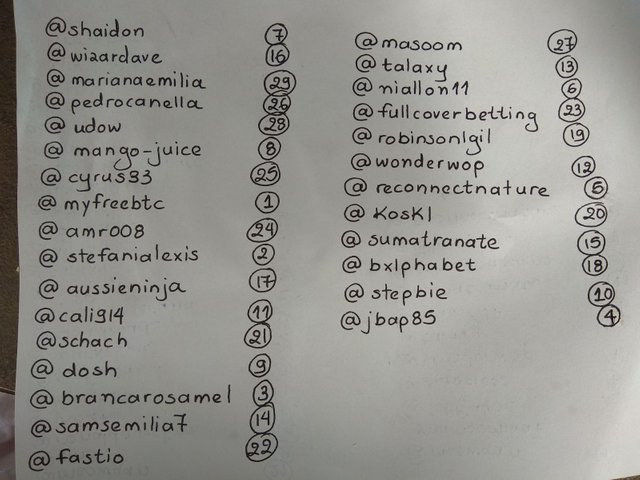 @shaidon 7
@wizardave 16
@marianaemilia 29
@pedrocanella 26
@udow 28
@mango-juice 8
@cyrus93 25
@myfreebtc 1
@amr008 24
@stefanialexis 2
@aussieninja 17
@cali914 11
@schach 21
@dosh 9
@brancarosamel 3
@samsemilia7 14
@fastio 22
@masoom 27
@talaxy 13
@niallon11 6
@fullcoverbetting 23
@robinsonlgil 19
@wonderwop 12
@reconnectnature 5
@KosKI 20
@sumatranate 15
@bxlphabet 18
@stepbie 10
@jbap85 4